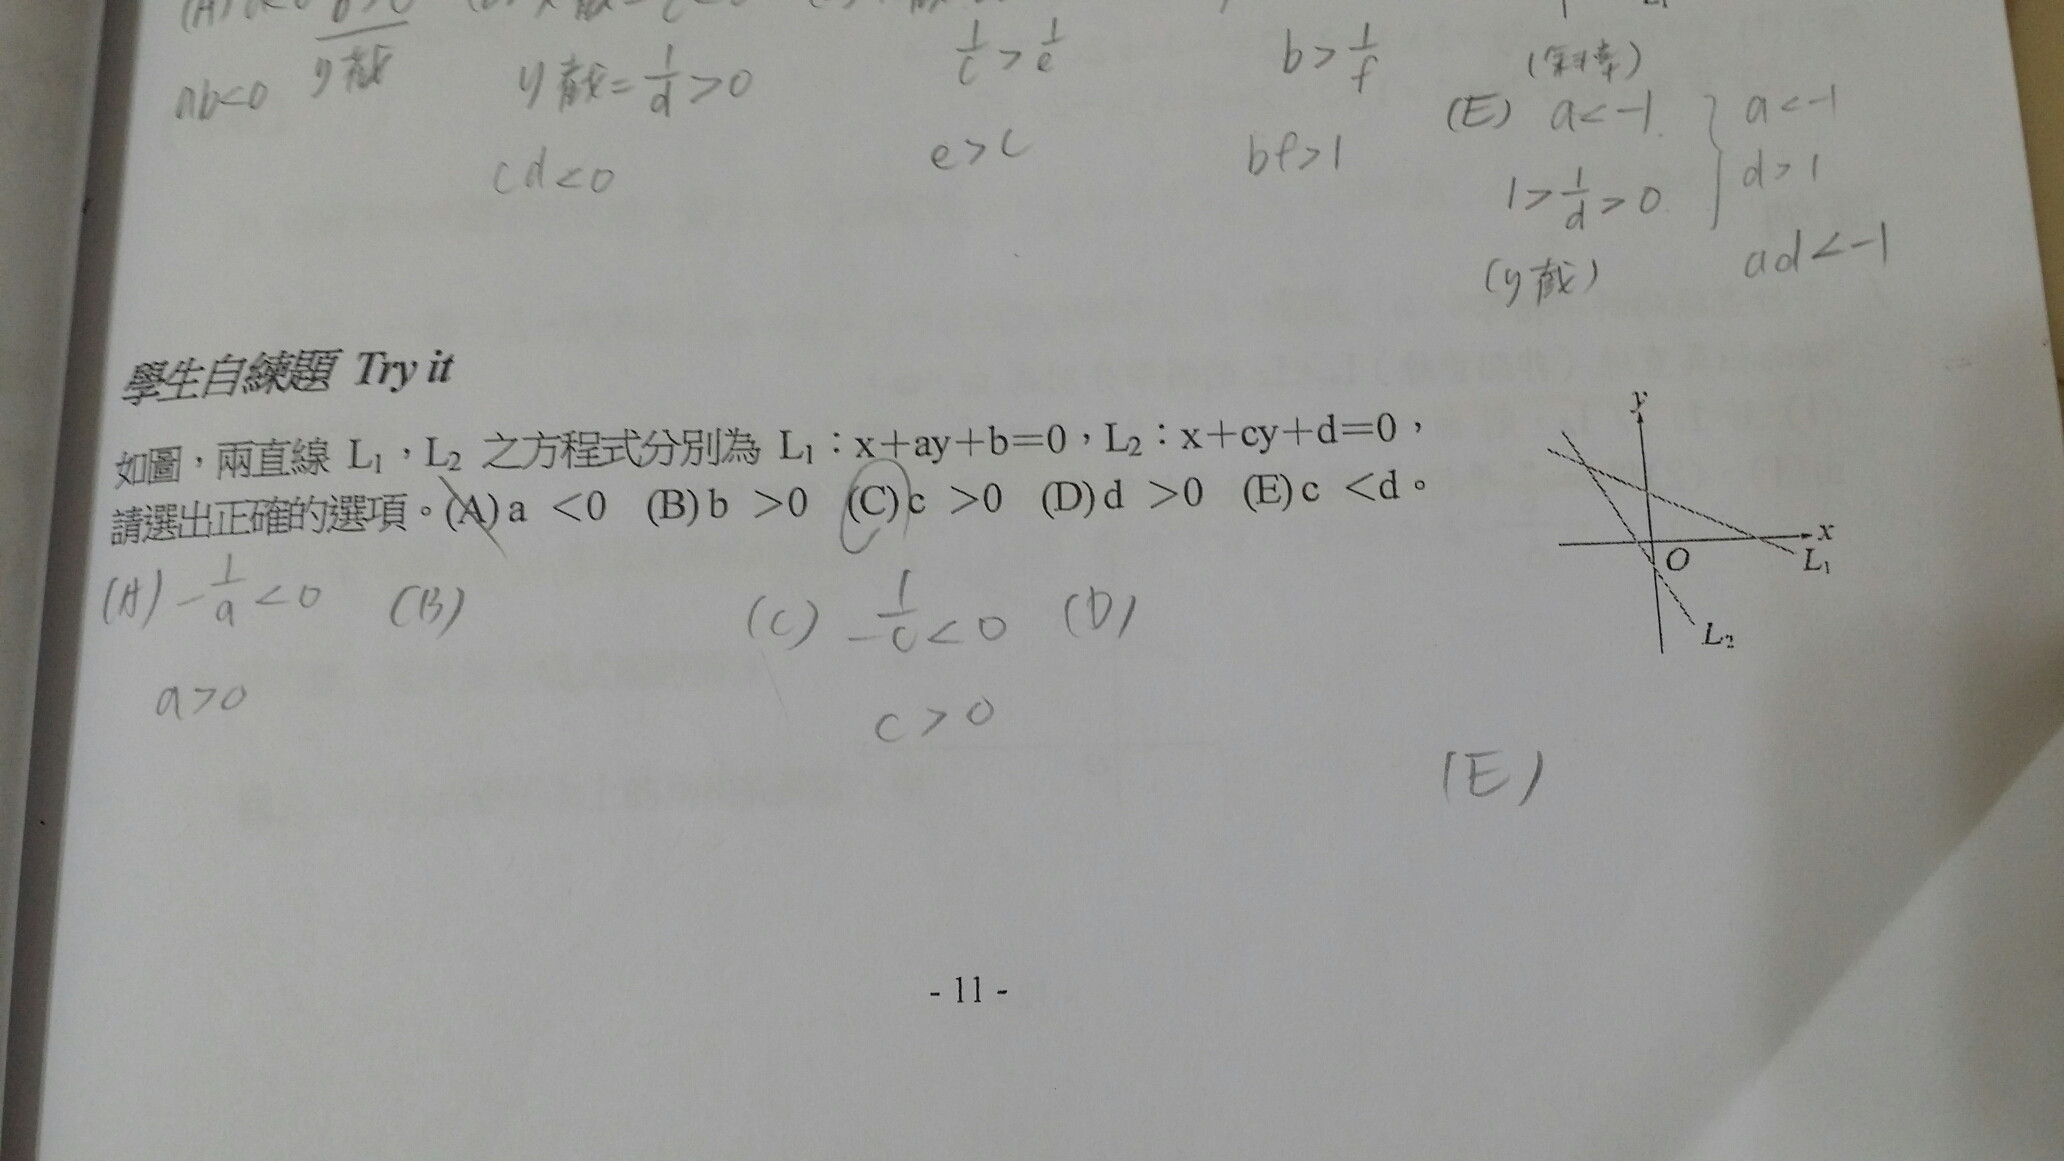 ab<0 y截 y截=1/d>0 1/c>1/e b>1/f (斜率)
cd<0 e>c bf>1 (E) a<-1 a<-1
1>1/d>0 d>1
(y截) ad<-1
學生自練題 Try it
如圖，兩直線 L₁，L₂ 之方程式分別為 L₁：x+ay+b=0，L₂：x+cy+d=0，
請選出正確的選項。(A)a <0 (B)b >0 (C)c >0 (D)d >0 (E)c <d。
y
x
O
L₁
L₂
(A) -1/a<0 (B) (C) -1/c<0 (D)
a>0 c>0
(E)
- 11 -